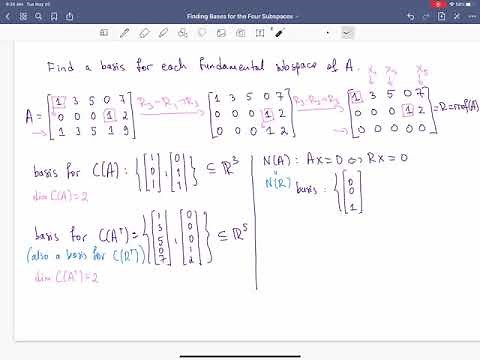 9:36 AM Tue May 25
58%
Finding Bases for the Four Subspaces
Find a basis for each fundamental subspace of A.
A = [1 3 5 0 7; 0 0 0 1 2; 1 3 5 1 9] R3-R1→R3 [1 3 5 0 7; 0 0 0 1 2; 0 0 0 1 2] R3-R2→R3 [1 3 5 0 7; 0 0 0 1 2; 0 0 0 0 0] = R = rref(A)
basis for C(A): {[1 0 1], [0 1 1]} ⊆ ℝ³
dim C(A) = 2
basis for C(Aᵀ) = {[1 3 5 0 7], [0 0 0 1 2]} ⊆ ℝ⁵
(also a basis for C(Rᵀ))
dim C(Aᵀ) = 2
N(A): Ax = 0 ⇔ Rx = 0
N(R)
basis: {[0 0 1]